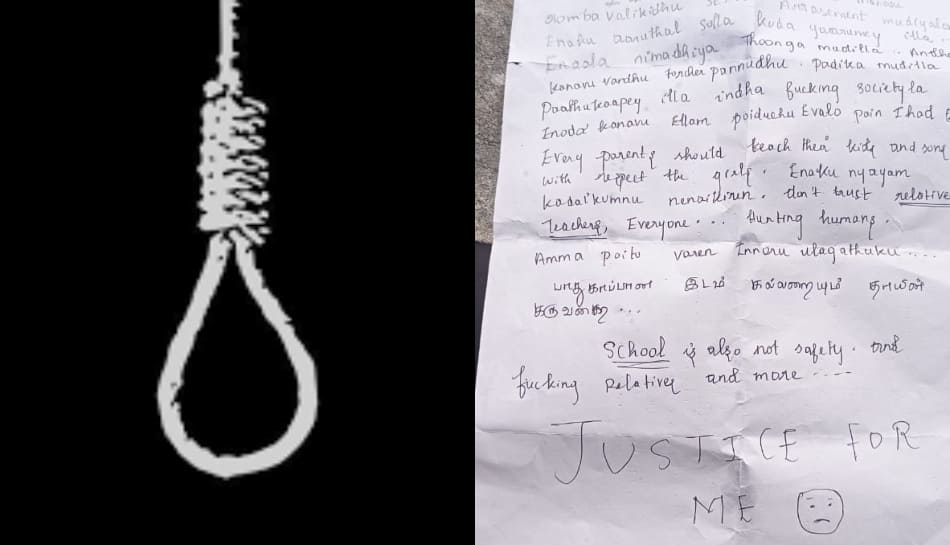 romba valikidhu
Enaku aaruthal solla kuda yaarumey illa ..
Ennala nimadhiya Thoonga mudilla ..
kanavu vandhu torcher pannudhu. padika mudilla
Paadhukaapey illa indha fucking society la
Enoda kanavu Ellam poiduchu Evalo pain I had
Every parents should teach their kids and
with respect the girls. Enaku nyayam
kadaikumnu nenaikiren. don't trust relative
Teachers, Everyone ... Hunting humans.
Amma poitu varen Innoru ulagathuku ....
பாதுகாப்பான இடம் கல்லறையும் தாயின்
கருவறை ...
School is also not safety. and
fucking relatives and more ....
JUSTICE FOR
ME